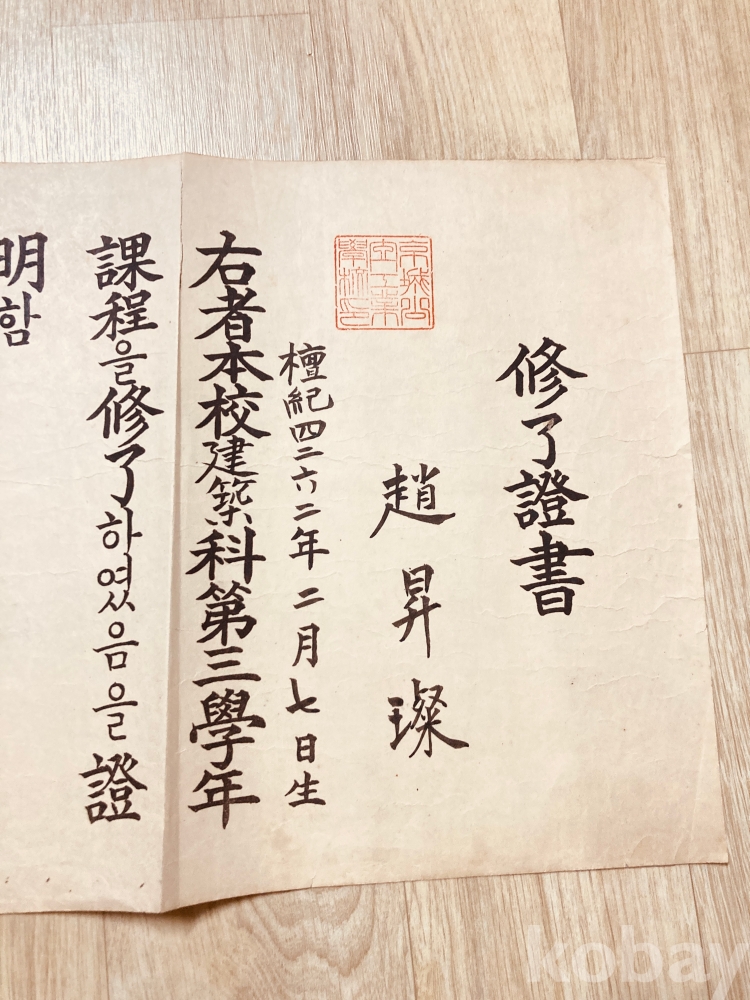 修了證書
趙昇璨
檀紀四二六二年二月七日生
右者本校建築科第三學年
課程을修了하였음을證
明함
京城公
立工業
學校印
kobay